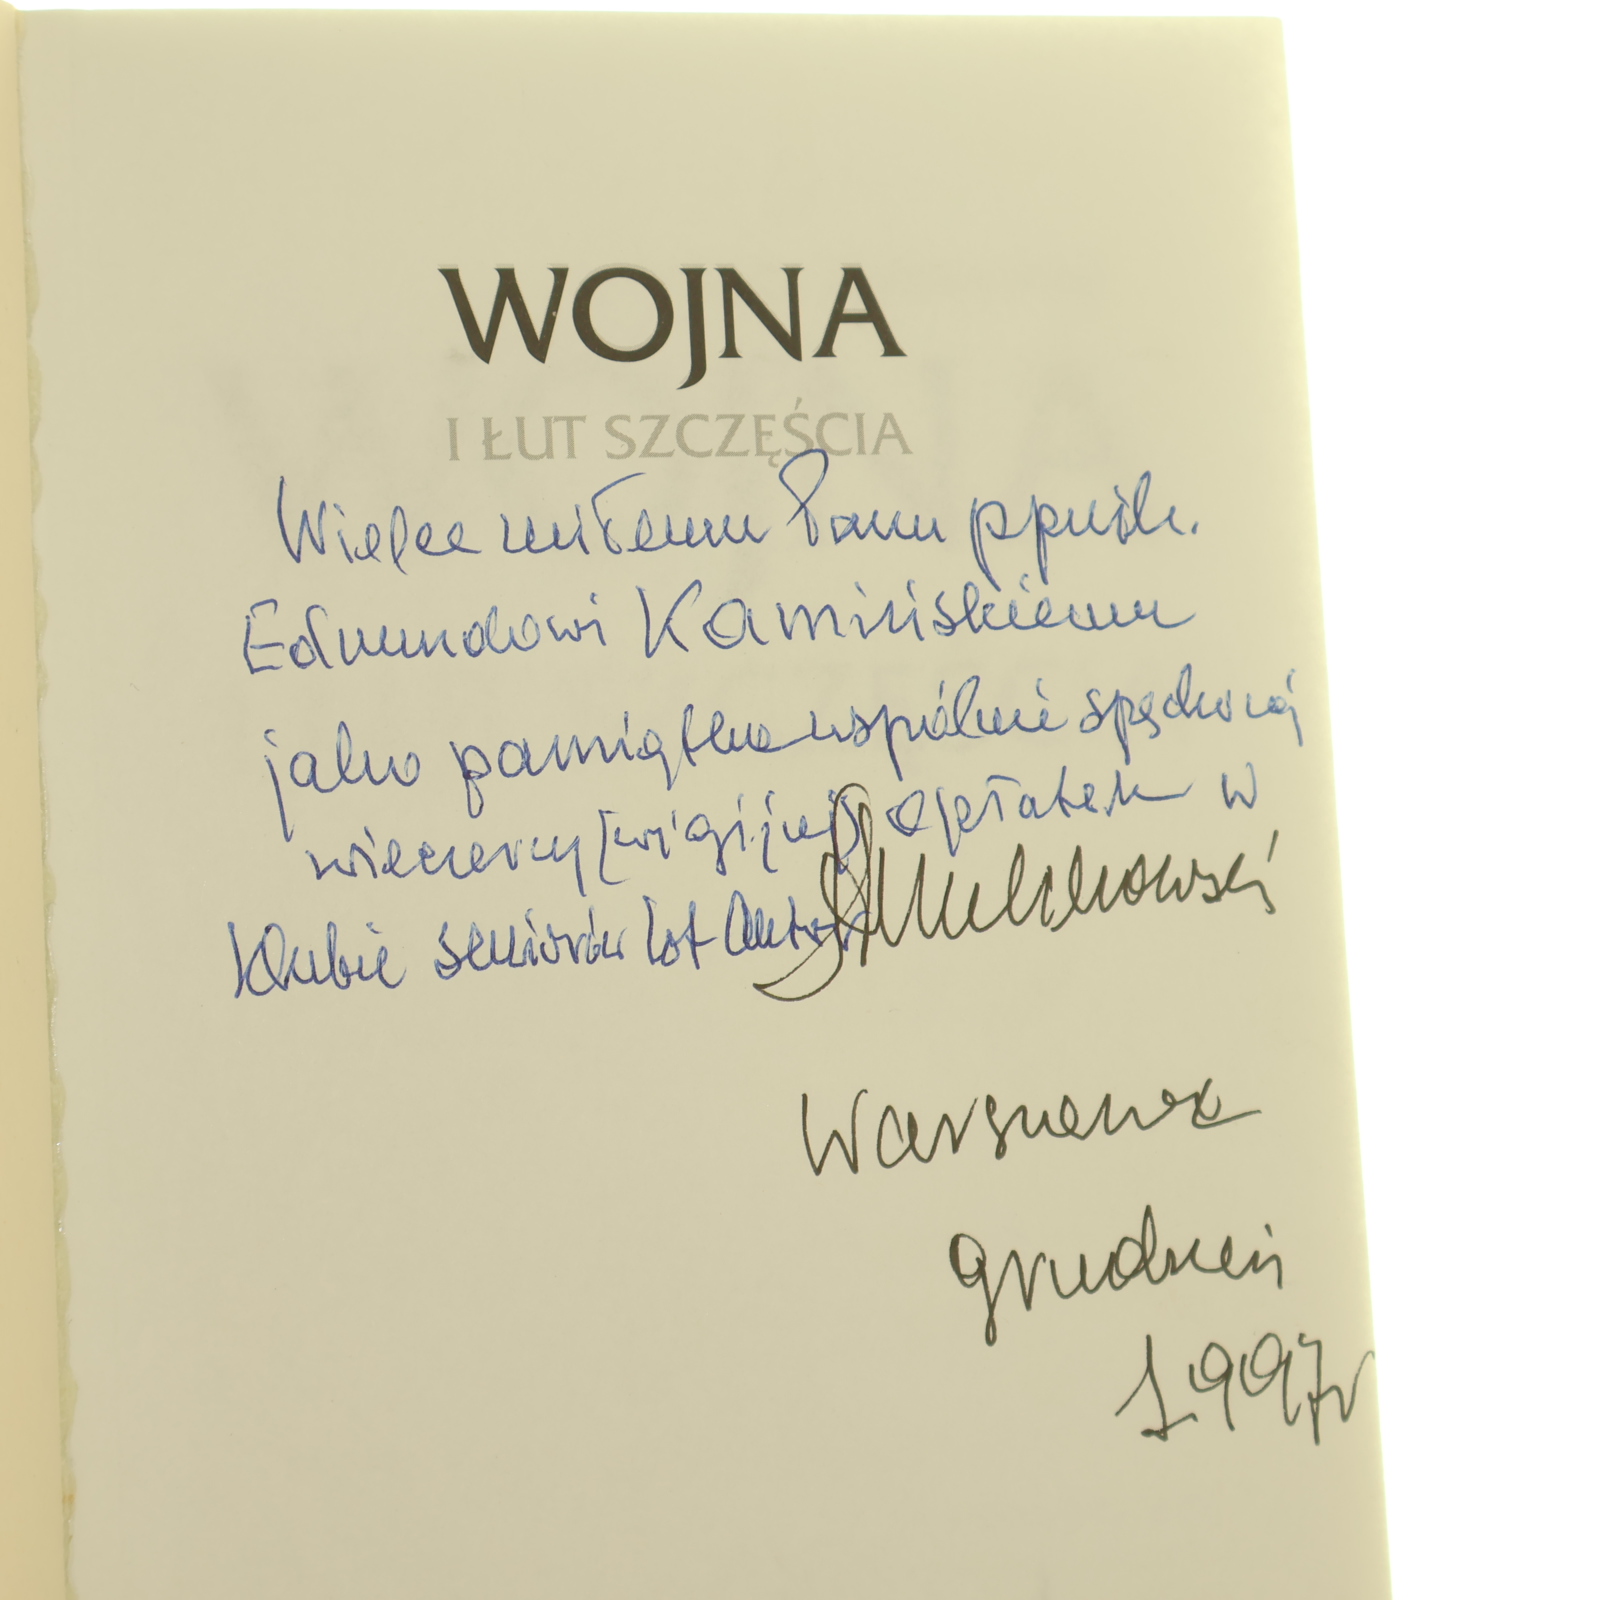 WOJNA
I ŁUT SZCZĘŚCIA
Wielce miłemu Panu ppułk.
Edmundowi Kamińskiemu
jako pamiątka wspólnie spędzonej
wieczerzy [wigilijnej] opłatek w
Klubie seniorów lot Autor
Warszawa
grudzień
1997r